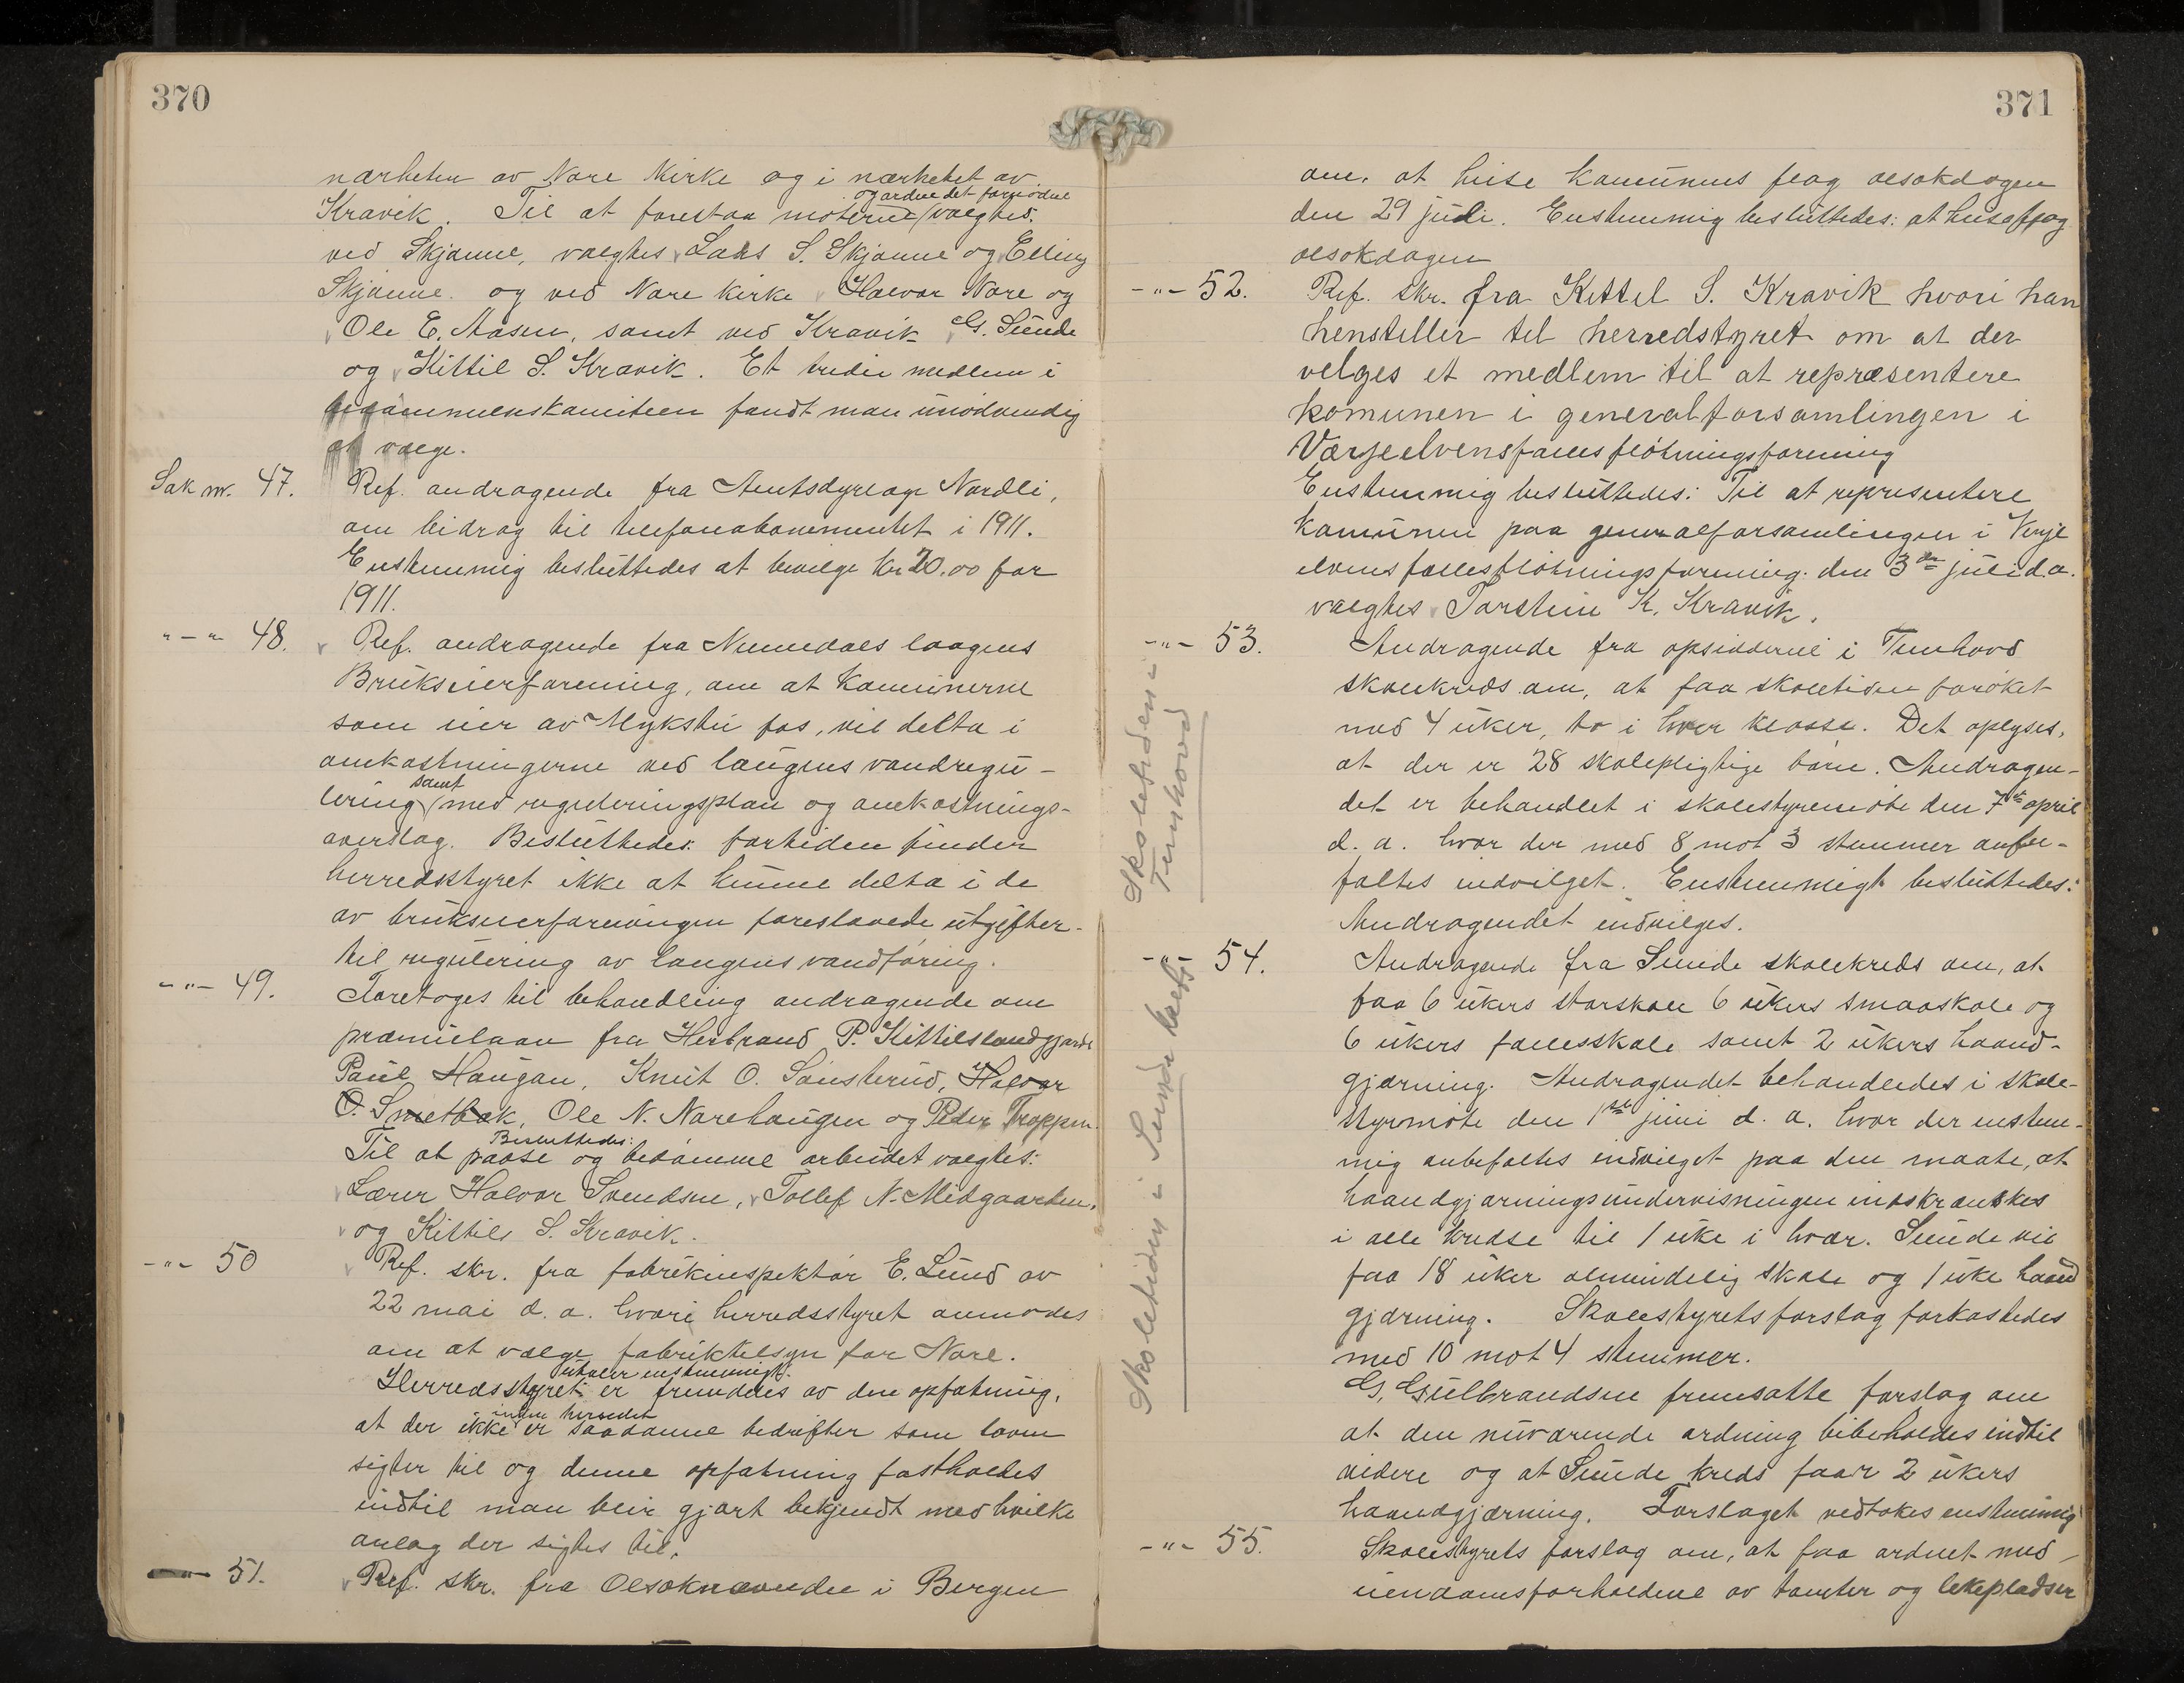 370
nærheten av Nore Kirke og i nærhetet av
og ordne det fornødne
Kravik. Til at forestaa møterne valgtes.
ved Skjønne, valgtes Lars S. Skjønne og Elling
Skjønne. og ved Nore kirke Halvor Nore og
Ole E. Aasen, samt ved Kravik G. Sunde
og Kittil S. Kravik. Et tredie medlem i
fandt man unødvendig
at vælge.
Sak nr. 47. Ref. andragende fra Amtsdyrlæge Nordli,
om bidrag til telefonabonementet i 1911.
Enstemmig besluttedes at bevilge kr 20.00 for
1911.
"-" 48. Ref. andragende fra Numedals laagens
Brukseierforening, om at Komunerne
som eier av Mykstu fos, vil delta i
omkostningerne ved laugens vandregu-
samt
lering med reguleringsplan og omkostnings-
averslag. Besluttedes: fortiden finder
herredsstyret ikke at kunne delta i de
av brukseierforeningen foreslaaede utgifter
til regulering av laugens vandføring.
-"- 49. Foretoges til behandling andragende om
præmielaan fra Herbrand P. Kittilslandgjorde
Paul Haugan, Knut O. Sønsterud, Halvor
O. Smetbak, Ole N. Norehaugen og Peder Troppen.
Besluttedes:
Til at paase og bedømme arbeidet valgtes:
Lærer Halvor Svendsen, Tollef N. Midgaarden,
og Kittil S. Kravik.
-"- 50 Ref. skr. fra fabrikinspektør E. Lund av
22 mai d. a. hvori herredsstyret anmodes
om at vælge fabriktilsyn for Nore.
uttaler enstemmigt.
Herredsstyret er fremdeles av den opfatning,
inden herredet
at der ikke er saadanne bedrifter som loven
sigter til og denne opfatning fastholdes
indtil man blir gjort bekjendt med hvilke
anlæg der sigtes til.
51. Ref. skr. fra Olsoknævnden i Bergen
371
om, at heise komunens flag olsokdagen
den 29 juli. Enstemmig besluttedes: at heise flag
olsokdagen
-"- 52. Ref. skr. fra Kittel S. Kravik hvori han
henstiller til herredstyret om at der
velges et medlem til at repræsentere
komunen i generalforsamlingen i
Værjeelvensfællesfløtningsforening
Enstemmig besluttedes: Til at representere
Komunen paa generalforsamlingen i Verje
elvens fællesfløtningsforening den 3die juli d. a.
valgtes Torstein K. Kravik.
-"- 53. Andragende fra opsidderne i Tunhovd
skolekreds om, at faa skoletiden forøket
med 4 uker, to i hver klasse. Det oplyses,
at der er 28 skolepligtige barn. Andragen-
det er behandlet i skolestyremøte den 7de april
d. a. hvor der med 8 mot 3 stemmer anbe-
faltes indvilget. Enstemmigt besluttedes:
Andragendet indvilges.
Skoletiden i
Tunhovd
-"- 54. Andragende fra Sunde skolekreds om, at
faa 6 ukers storskole 6 ukers smaaskole og
6 ukers fællesskole samt 2 ukers haand-
gjærning. Andragendet behandledes i skole-
styrmøte den 1ste juni d. a. hvor der enstem-
mig anbefaltes indvilget paa den maate, at
haandgjærningsundervisningen indskrænkes
i alle kredse til 1 uke i hver. Sunde vil
faa 18 uker almindelig skole og 1 uke haand
gjærning. Skolestyrets forslag forkastedes
med 10 mot 4 stemmer.
G. Gulbrandsen fremsatte forslag om
at den nuværende ordning bibeholdes indtil
videre og at Sunde kreds faar 2 ukers
haandgjærning. Forslaget vedtokes enstemmig
Skoletiden i Sunde kreds
-"- 55. Skolestyrets forslag om, at faa ordnet med
eiendomsforholdene av tomter og lekepladser